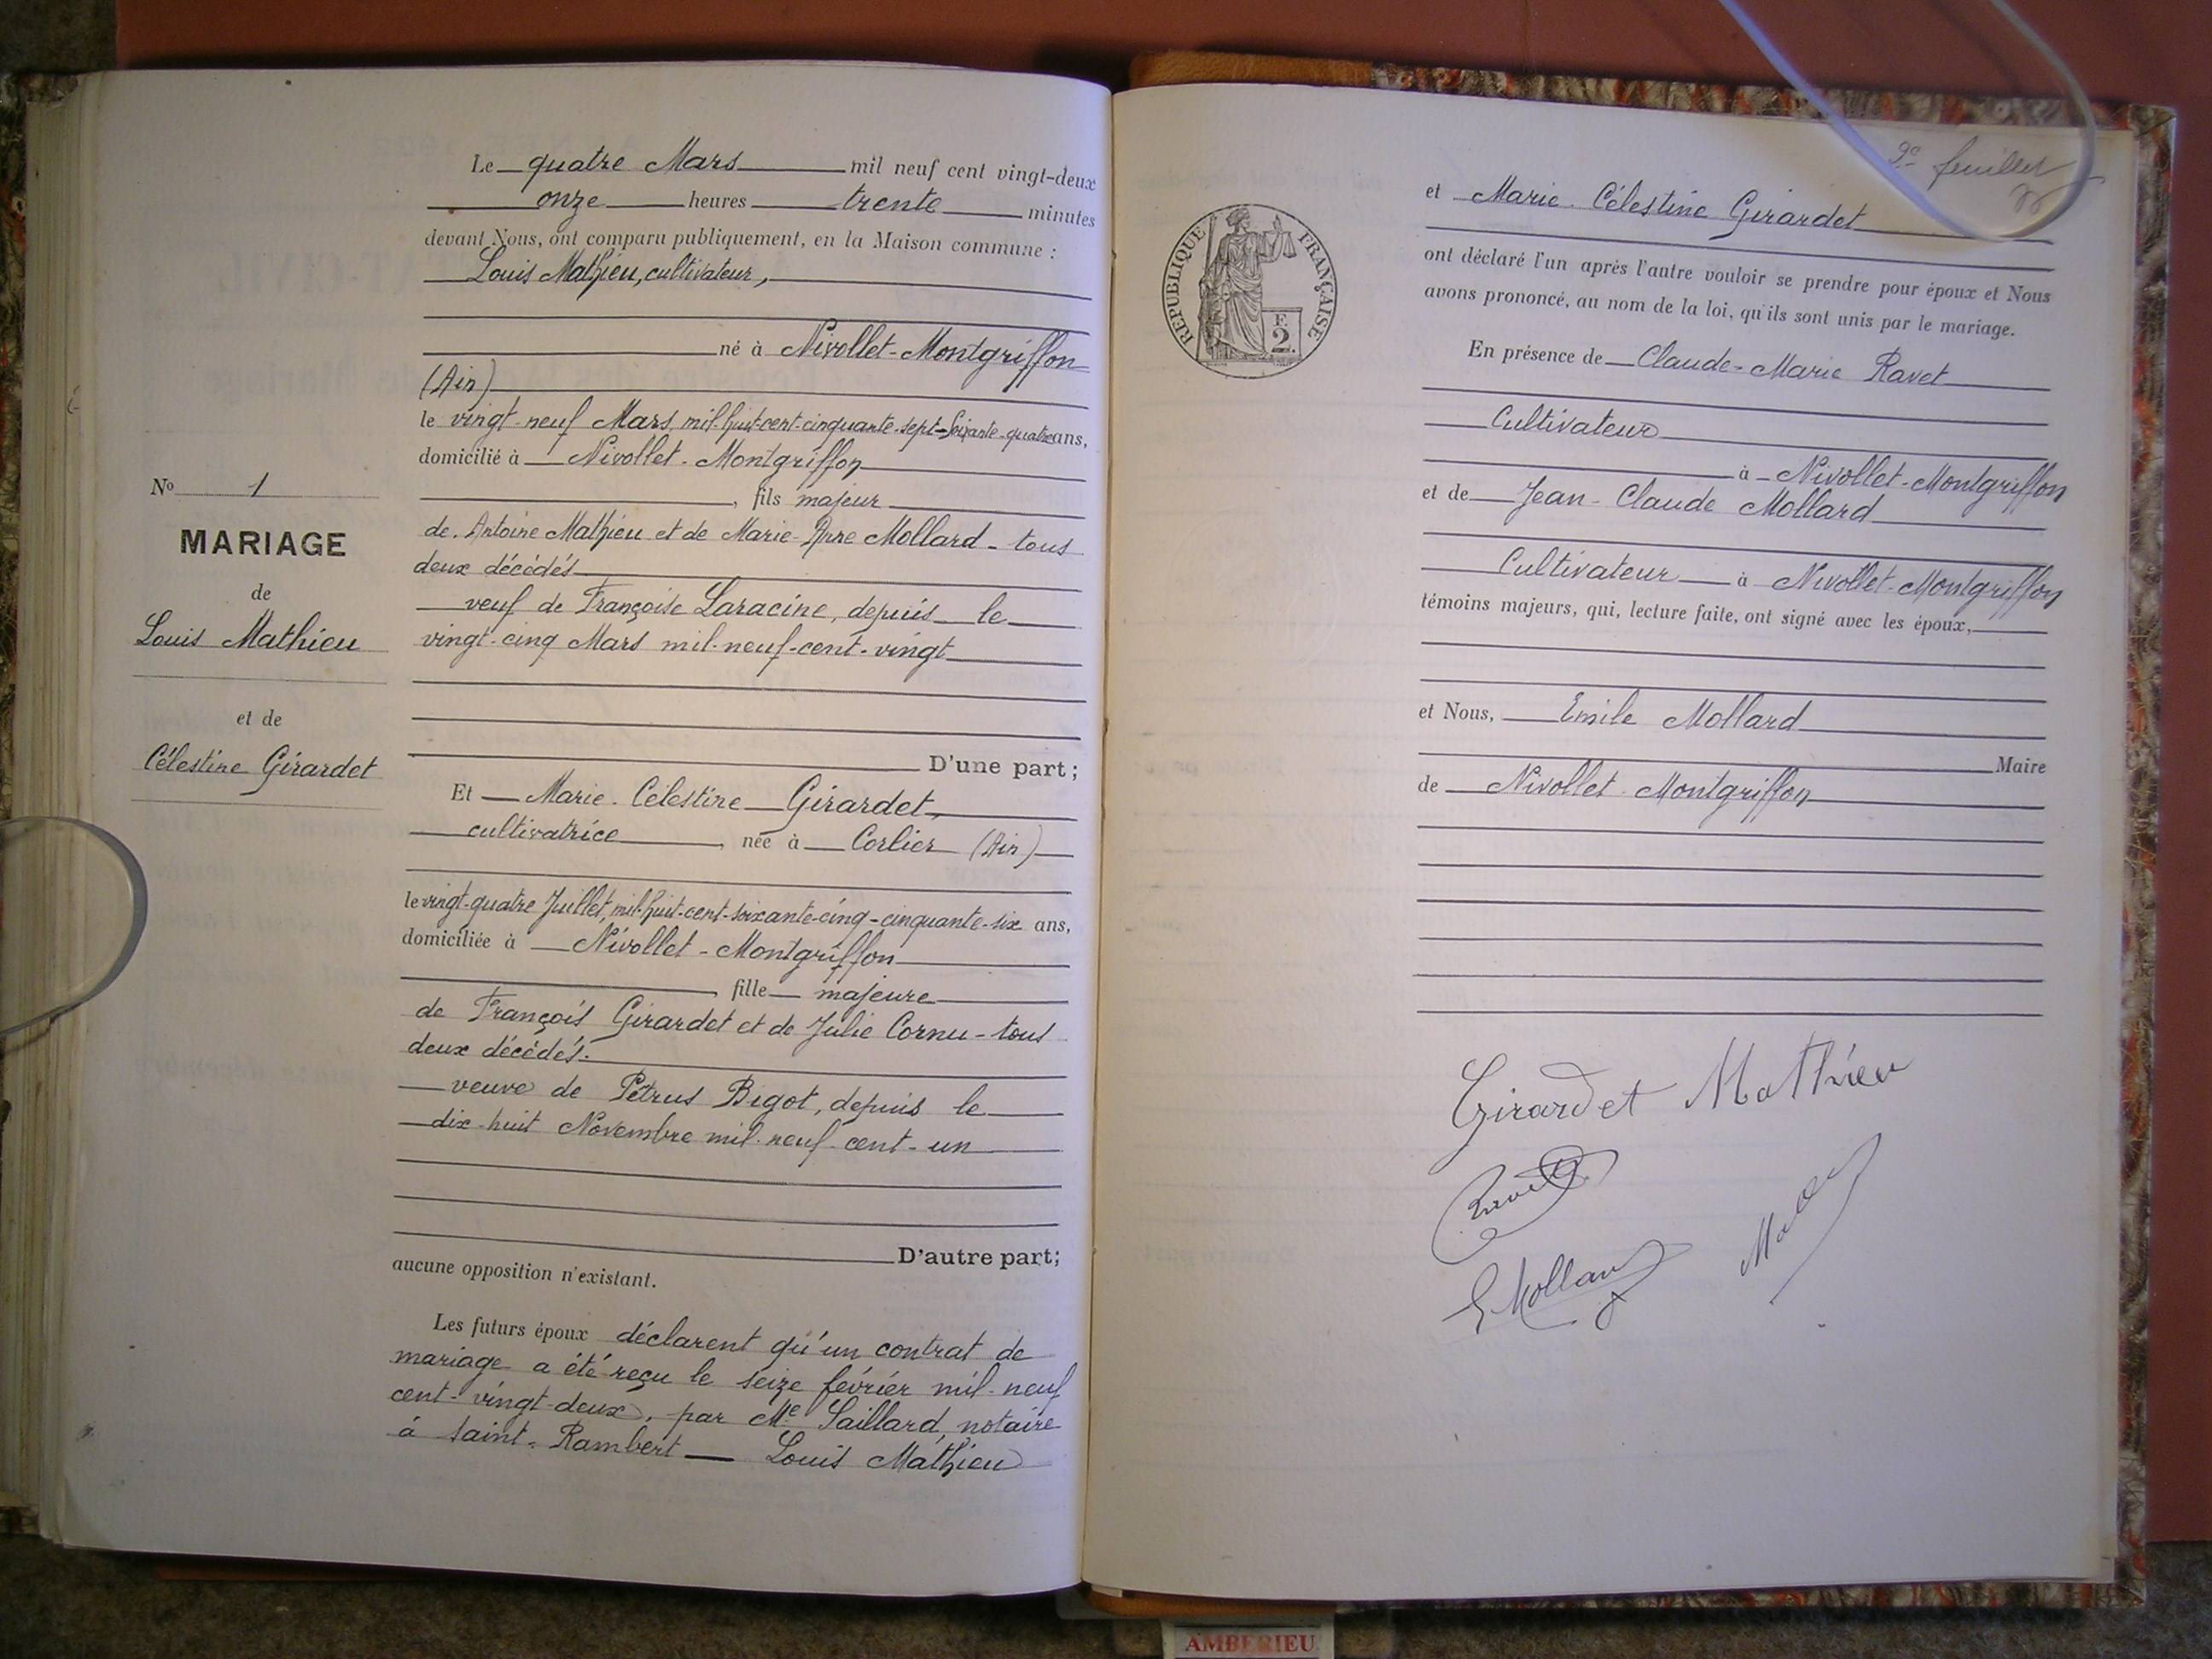 Le quatre Mars mil neuf cent vingt-deux
onze heures trente minutes
devant Nous, ont comparu publiquement, en la Maison commune :
Louis Mathieu, cultivateur,
né à Nivollet-Montgriffon
(Ain)
le vingt-neuf Mars mil-huit-cent-cinquante-sept-soixante-quatre ans,
domicilié à Nivollet-Montgriffon
, fils majeur
de Antoine Mathieu et de Marie-Anne Mollard - tous
deux décédés
veuf de Françoise Laracine, depuis le
vingt-cinq Mars mil-neuf-cent-vingt
D'une part;
Et Marie-Célestine Girardet,
cultivatrice, née à Corlier (Ain)
le vingt-quatre Juillet, mil-huit-cent-soixante-cinq-cinquante-six ans,
domiciliée à Nivollet-Montgriffon
, fille majeure
de François Girardet et de Julie Cornu - tous
deux décédés.
veuve de Pétrus Bigot, depuis le
dix-huit Novembre mil-neuf-cent-un
D'autre part;
aucune opposition n'existant.
Les futurs époux déclarent qu'un contrat de
mariage a été reçu le seize février mil-neuf
cent-vingt-deux, par Me Saillard, notaire
à Saint-Rambert Louis Mathieu
No 1
MARIAGE
de
Louis Mathieu
et de
Célestine Girardet
2e feuillet
REPUBLIQUE FRANÇAISE
F.
2.
et Marie-Célestine Girardet
ont déclaré l'un après l'autre vouloir se prendre pour époux et Nous
avons prononcé, au nom de la loi, qu'ils sont unis par le mariage.
En présence de Claude-Marie Ravet
Cultivateur
à Nivollet-Montgriffon
et de Jean-Claude Mollard
Cultivateur à Nivollet-Montgriffon
témoins majeurs, qui, lecture faite, ont signé avec les époux,
et Nous, Emile Mollard
Maire
de Nivollet Montgriffon
Girardet Mathieu
Ravet
E Mollard
AMBERIEU